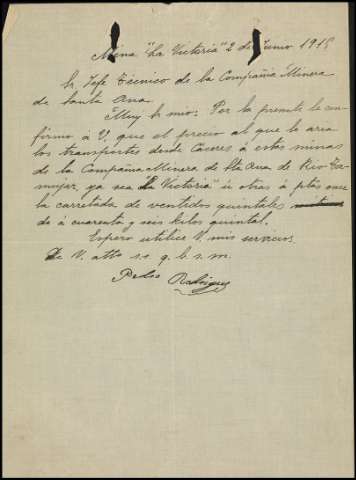 Mina "La Victoria" 2 de Junio 1915
Sr Jefe Técnico de la Compañia Minera
de Santa Ana.
Muy Sr mio: Por la presente le con-
firmo á V. que el precio al que le area
los transportes desde Cáceres á estas minas
de la Compañia Minera de Sta Ana de Rio-Ta-
mujar, ya sea "La Victoria" ú otras á ptas once
la carretada de ventidos quintales
de á cuarenta y seis kilos quintal.
Espero utilice V. mis servicios.
De V. atto s.s. q. b. s. m.
Pedro Rodriguez